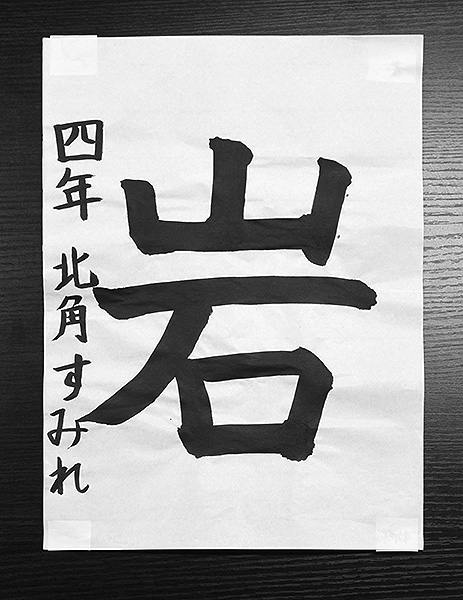 岩
四年 北角すみれ